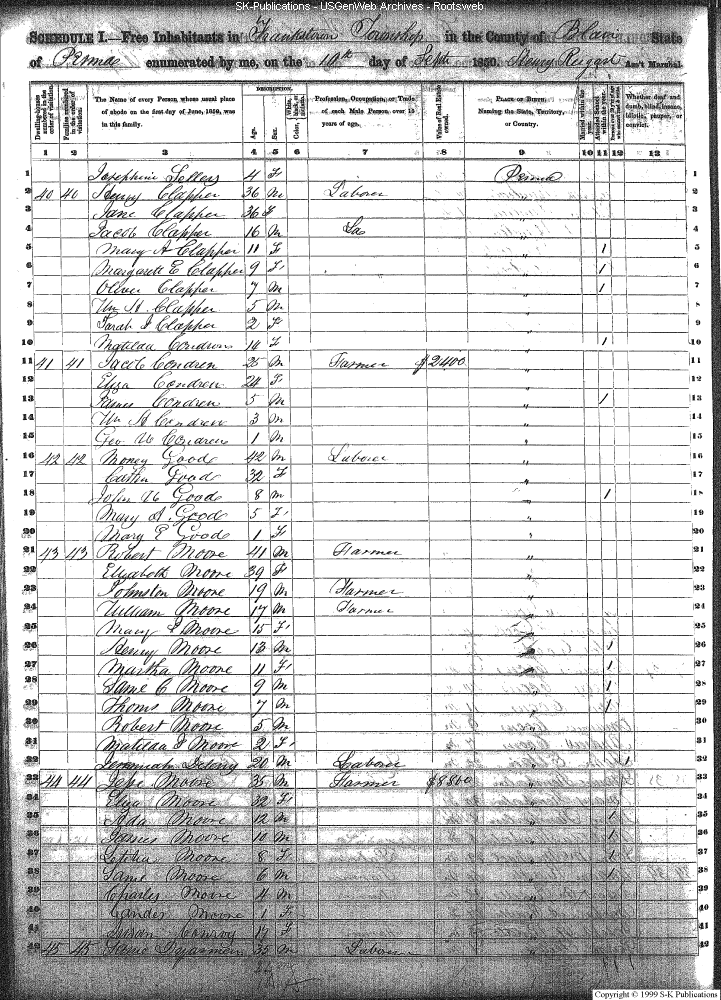 SK-Publications - USGenWeb Archives - Rootsweb
SCHEDULE I.—Free Inhabitants in Frankstown Township in the County of Blair State
of Penna enumerated by me, on the 10th day of Sept 1850. Ass't Marshal.
DESCRIPTION.
Dwelling-houses numbered in the order of visitation.
Families numbered in the order of visitation.
The Name of every Person whose usual place of abode on the first day of June, 1850, was in this family.
Age.
Sex.
Color, White, black, or mulatto.
Profession, Occupation, or Trade of each Male Person over 15 years of age.
Value of Real Estate owned.
PLACE OF BIRTH, Naming the State, Territory, or Country.
Married within the year.
Attended School within the year.
Whether deaf and dumb, blind, insane, idiotic, pauper, or convict.
1 2 3 4 5 6 7 8 9 10 11 12 13
1 Josephine Sellers 4 F Penna 1
2 40 40 Henry Clapper 36 M Laborer " 2
3 Jane Clapper 36 F " 3
4 Jacob Clapper 16 M Do " 4
5 Mary A Clapper 11 F " 1 5
6 Margarett E Clapper 9 F " 1 6
7 Oliver Clapper 7 M " 1 7
8 Wm H Clapper 5 M " 8
9 Sarah J Clapper 2 F " 9
10 Matilda Condron 14 F " 1 10
11 41 41 Jacob Condren 25 M Farmer $2400 " 11
12 Eliza Condren 24 F " 12
13 James Condren 5 M " 1 13
14 Wm H Condren 3 M " 14
15 Geo W Condren 1 M " 15
16 42 42 Money Good 42 M Laborer " 16
17 Good 32 F " 17
18 John W Good 8 M " 1 18
19 Mary A Good 5 F " 19
20 Mary E Good 1 F " 20
21 43 43 Robert Moore 41 M Farmer " 21
22 Elizabeth Moore 39 F " 22
23 Johnston Moore 19 M Farmer " 23
24 William Moore 17 M Farmer " 24
25 Mary E Moore 15 F " 25
26 Henry Moore 13 M " 1 26
27 Martha Moore 11 F " 1 27
28 Saml C Moore 9 M " 1 28
29 Thoms Moore 7 M " 1 29
30 Robert Moore 5 M " 30
31 Matilda J Moore 2 F " 31
32 Jeremiah 20 M Laborer " 1 32
33 44 44 Jesse Moore 35 M Farmer $8860 " 33
34 Eliza Moore 32 F " 34
35 Ada Moore 12 M " 1 35
36 James Moore 10 M " 1 36
37 Letitia Moore 8 F " 1 37
38 Saml Moore 6 M " 1 38
39 Charles Moore 4 M " 39
40 Moore 1 F " 40
41 Susan Conroy 17 F " 41
42 45 45 Saml 35 M Laborer " 42
Copyright © 1999 S-K Publications